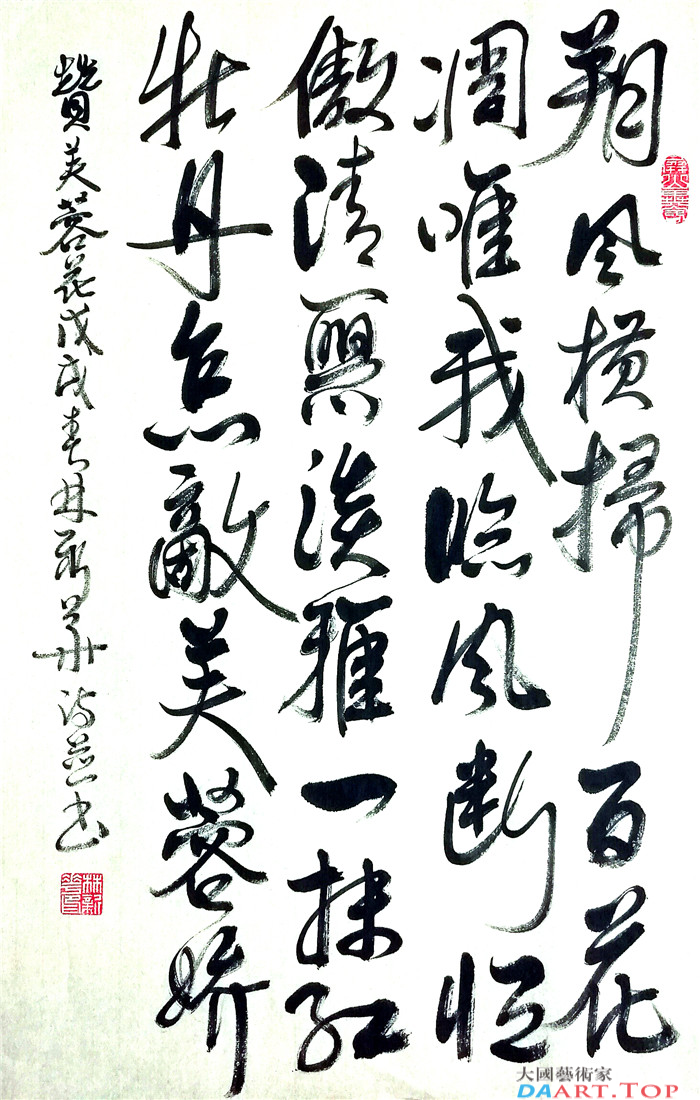 朔风横掃百花
凋唯我临风断恒
傲清麗淡雅一抹红
牡丹怎敵芙蓉娇
赞芙蓉花戊戌春林新華诗并书
大國藝術家
DAART.TOP